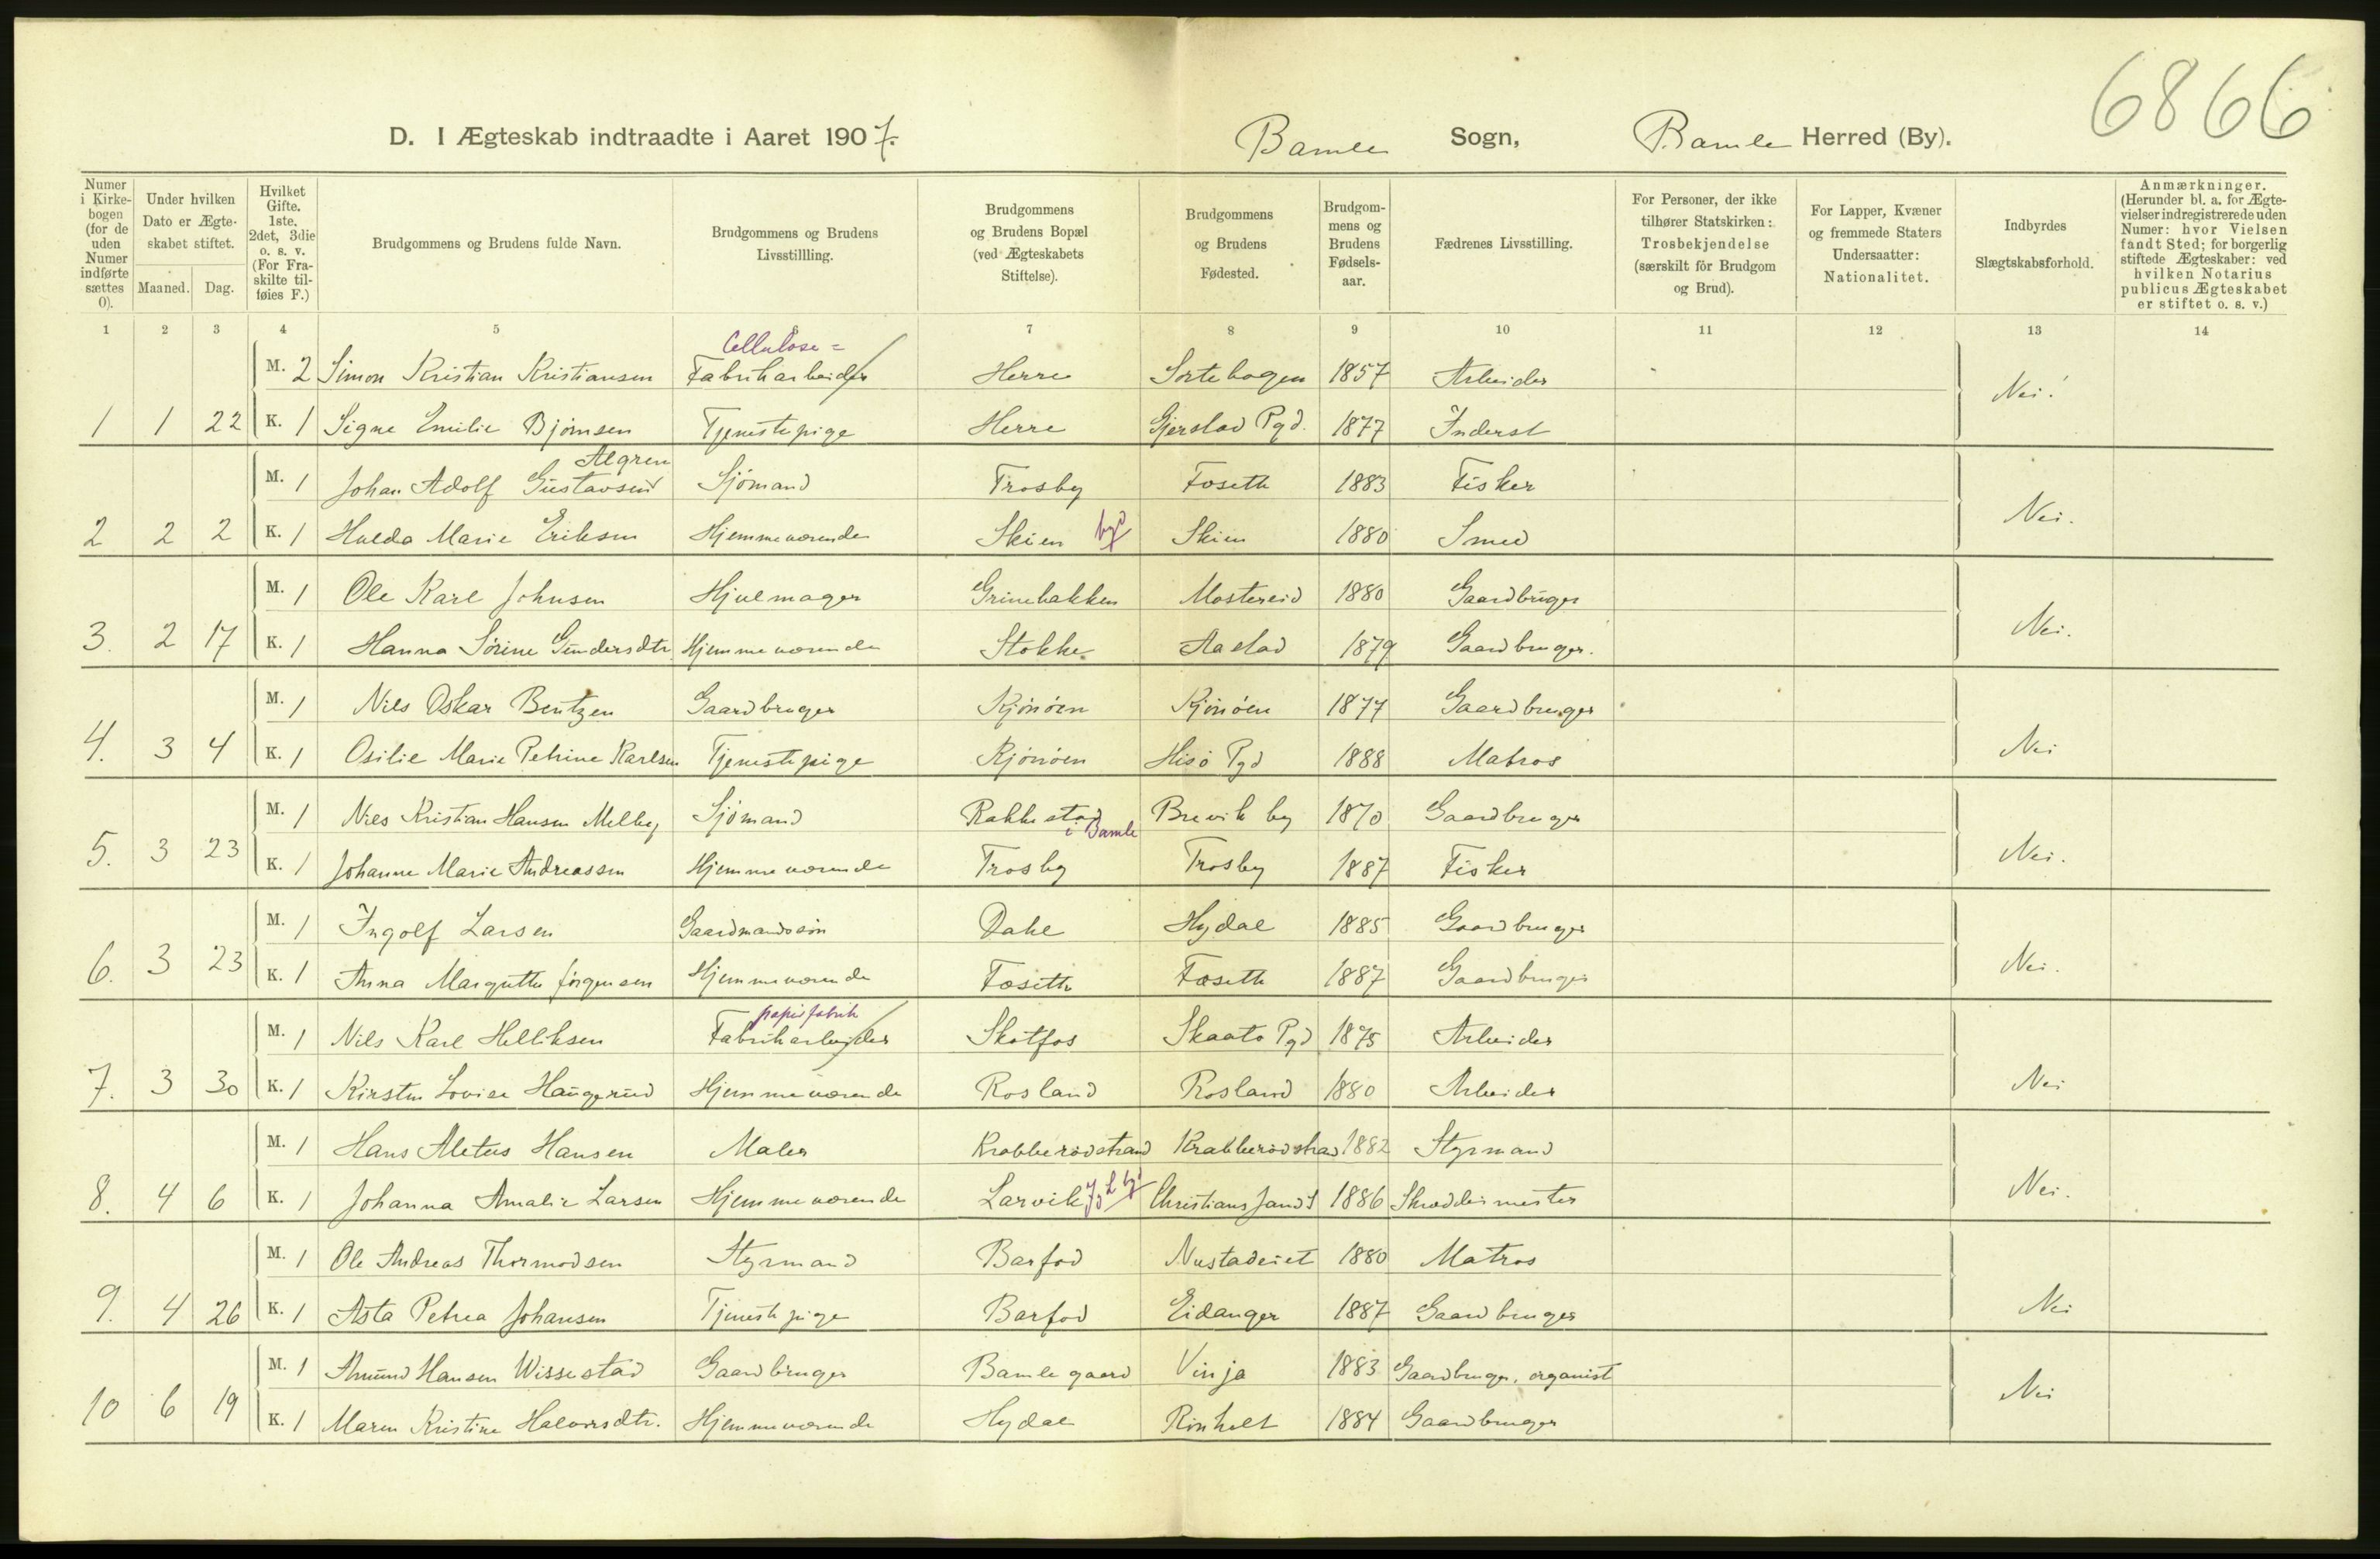 6866
D. I Ægteskab indtraadte i Aaret 1907. Bamle Sogn, Bamle Herred (By).
Numer i Kirke-bogen (for de uden Numer indførte sættes 0). Under hvilken Dato er Ægte-skabet stiftet. Maaned. Dag. Hvilket Gifte. 1ste, 2det, 3die o. s. v. (For Fra-skilte til-føies F.) Brudgommens og Brudens fulde Navn. Brudgommens og Brudens Livsstillling. Brudgommens og Brudens Bopæl (ved Ægteskabets Stiftelse). Brudgommens og Brudens Fødested. Brudgom-mens og Brudens Fødsels-aar. Fædrenes Livsstilling. For Personer, der ikke tilhører Statskirken: Trosbekjendelse (særskilt for Brudgom og Brud). For Lapper, Kvæner og fremmede Staters Undersaatter: Nationalitet. Indbyrdes Slægtskabsforhold. Anmærkninger. (Herunder bl. a. for Ægte-vielser indregistrerede uden Numer: hvor Vielsen fandt Sted; for borgerlig stiftede Ægteskaber: ved hvilken Notarius publicus Ægteskabet er stiftet o. s. v.)
1 2 3 4 5 6 7 8 9 10 11 12 13 14
Cellulose=
M. 2 Simon Kristian Kristiansen Fabrikarbeider Herre Sortebogen 1857 Arbeider
Nei.
1 1 22 K. 1 Signe Emilie Bjørnsen Tjenestepige Herre Gjerstad Pgd. 1877 Inderst
Algren
M. 1 Johan Adolf Gustavsen Sjömand Trosby Foseth 1883 Fisker
Nei.
2 2 2 K. 1 Hulda Marie Eriksen Hjemmeværende Skien by Skien 1880 Smed
M. 1 Ole Karl Johnsen Hjulmager Grinebakken Mostereid 1880 Gaardbruger
Nei.
3. 2 17 K. 1 Hanna Sörine Gundersdtr. Hjemmeværende Stokke Aastad 1879 Gaardbruger.
M. 1 Nils Oskar Bentzen Gaardbruger Kjönöen Kjönöen 1877 Gaardbruger
Nei
4. 3 4 K. 1 Osilie Marie Petrine Karlsen Tjenestepige Kjönöen Hisö Pgd 1888 Matros
M. 1 Nils Kristian Hansen Melby Sjömand Rakkestad i Bamle Brevik by 1870 Gaardbruger
Nei.
5. 3 23 K. 1 Johanne Marie Andreassen Hjemmeværende Trosby Trosby 1887 Fisker
M. 1 Ingolf Larsen Gaardmandssön Dahl Hydal 1885 Gaardbruger
Nei.
6. 3 23 K. 1 Anna Margrethe Jörgensen Hjemmeværende Foseth Foseth 1887 Gaardbruger
papirfabrik
M. 1 Nils Karl Helliksen Fabrikarbeider Skotfos Skaato Pgd 1875 Arbeider
Nei
7. 3 30 K. 1 Kirsten Lovise Haugerud Hjemmeværende Rosland Rosland 1880 Arbeider
M. 1 Hans Aletus Hansen Maler Krabberödstrand Krabberödstrad 1882 Styrmand
Nei.
8. 4 6 K. 1 Johanna Amalie Larsen Hjemmeværende Larvik Christianssand S 1886 Skræddermester
M. 1 Ole Andreas Thormodsen Styrmand Barfod Nustadeiet 1880 Matros
Nei
9. 4 26 K. 1 Asta Petrea Johansen Tjenestepige Barfod Eidanger 1887 Gaardbruger
M. 1 Amund Hansen Wissestad Gaardbruger Bamle gaard Vinja 1883 Gaardbruger, organist
Nei
10 6 19 K. 1 Maren Kristine Halvorsdtr. Hjemmeværende Hydal Rinholt 1884 Gaardbruger